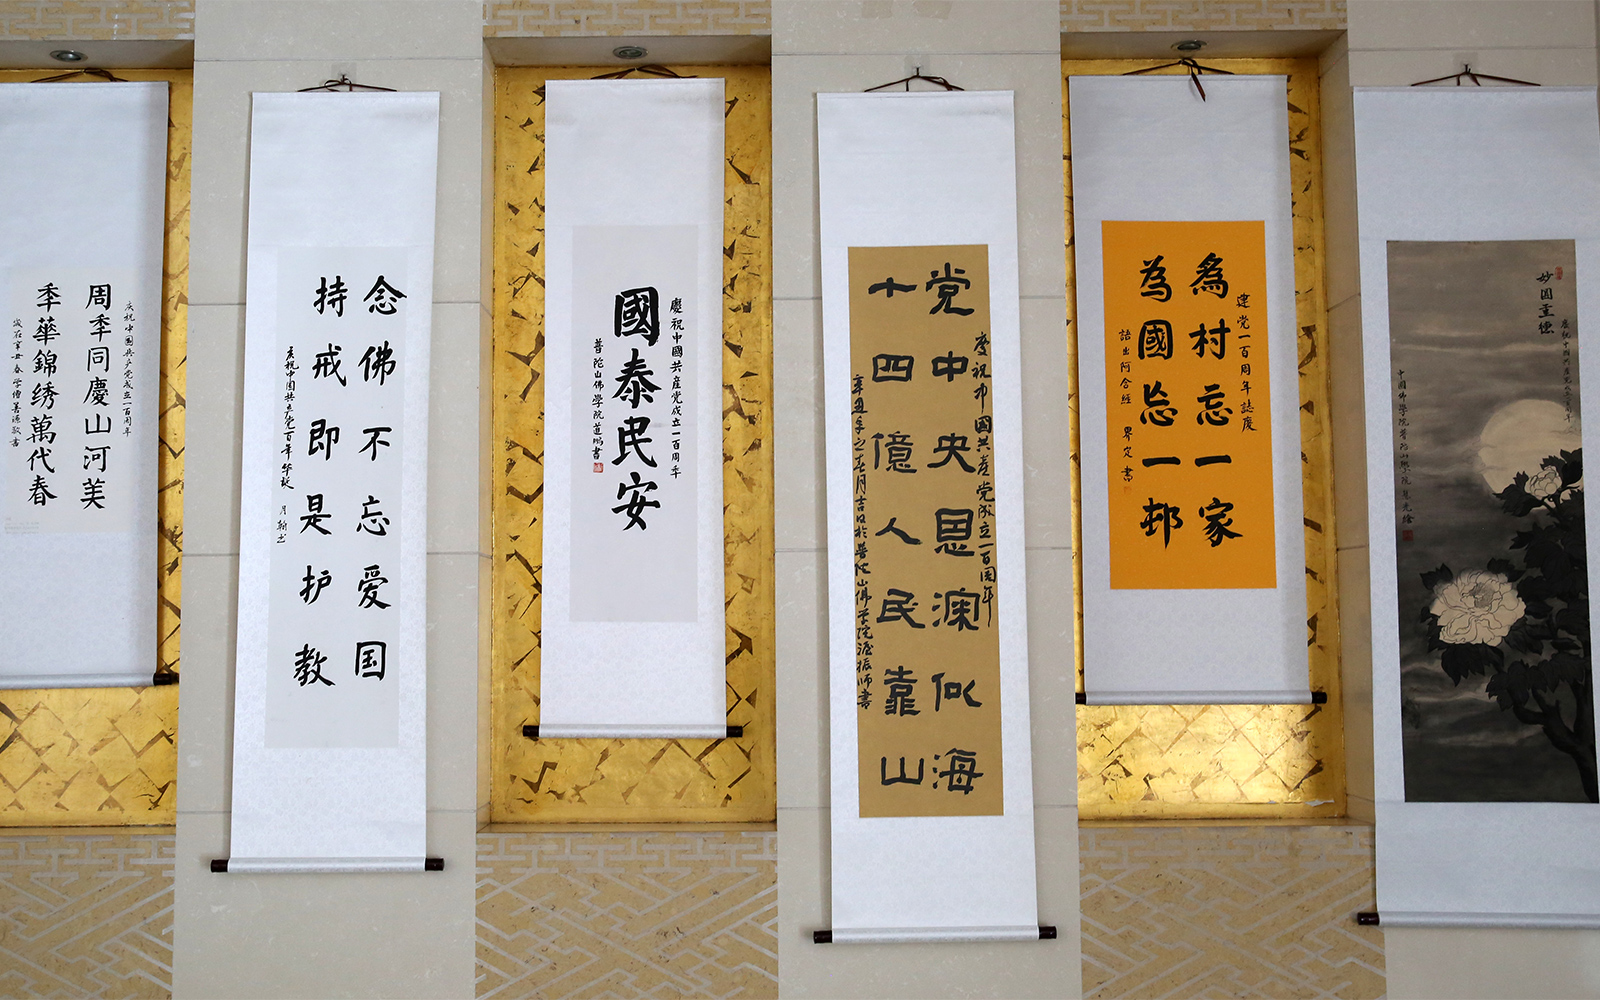 庆祝中国共产党成立一百周年
周秊同慶山河美
秊華錦绣萬代春
歲在辛丑春 学僧善源敬書
念佛不忘爱国
持戒即是护教
庆祝中国共产党百年华诞
月翰书
慶祝中國共産党成立一百周年
國泰民安
普陀山佛學院道
慶祝中國共産党成立一百周年
党中央恩深似海
十四億人民靠山
辛丑年之春月吉日於普陀山佛学院 振师書
建党一百周年誌慶
為村忘一家
為國忘一邨
語出阿含經 界定 書
妙圆
慶祝中國共産党
中國佛學院普陀山學院 慧光繪